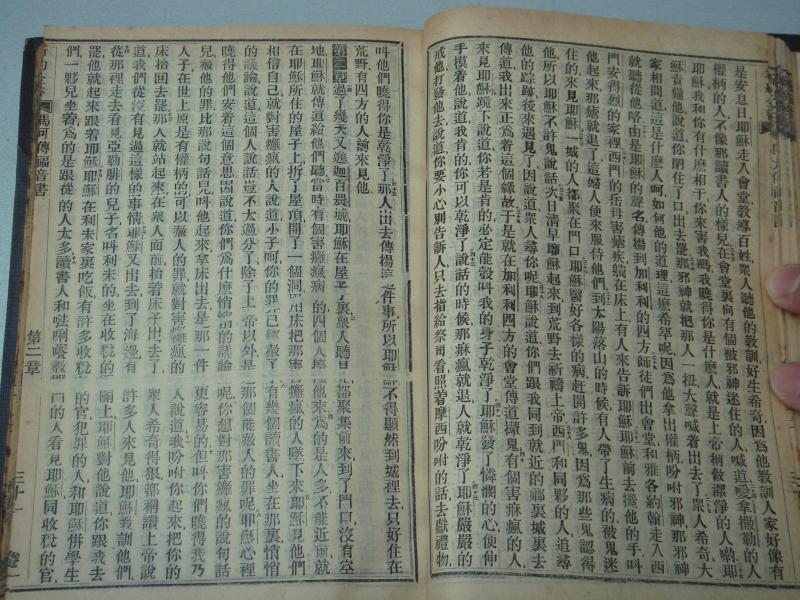 是安息日耶穌走入會堂教導百姓衆人聽他的教訓好生希奇因爲他教訓人家好像有
權柄的人不像那讀書人的樣兒在會堂裏向有個被邪神迷住的人喊道嗳拿撒勒的人
耶穌我和你有什麽相干你來害我嗎我曉得你是什麽人就是上帝稱做潔淨的人啲耶
穌責備他說道你閉住了口出去罷邪神就把那人一扭大聲喊着出去了衆人希奇大
家相問道這是什麽人呵如何他的道理這麽希罕呢因爲他拿出權柄吩咐邪神那邪神
就聽他咯由是耶穌的聲名傳揚到加利利的四方師徒們出會堂和雅各約翰走入西
門安得烈的家裡西門的岳母害瘧疾躺在床上有人來告訴耶穌耶穌前去攙他的手叫
他起來那瘧就退了這婦人便來服侍他們到太陽落山的時候有人帶了生病的被鬼迷
住的來見耶穌一城的人都聚在門口耶穌醫好各樣的病赶開許多鬼因爲那些鬼認得
他所以耶穌不許鬼說話次日清早耶穌起來到荒野去祈禱上帝西門和同夥的人追尋
他的踪跡後來遇見了因說道衆人尋你呢耶穌說道你們跟我同到就近的鄉城裏去
傳道我出來正爲着這個緣故于是就在加利利四方的會堂傳道攆鬼有個害痲瘋的人
來見耶穌跪下說道你若是肯的必定能彀叫我的身子乾淨了耶穌發了憐憫的心便伸
手摸着他說道我肯你可以乾淨了說話的時候那痲瘋就退人就乾淨了耶穌嚴嚴的
戒他打發他去說道你要小心別告訴人只去指給祭司看照着摩西吩咐的話去獻禮物
叫他們曉得你是乾淨了那人出去傳揚這件事所以耶穌不得顯然到城裡去只好住在
荒野有四方的人論來見他
過了幾天又進迦百農城耶穌在屋子裏衆人聽見都聚集前來到了門口沒有空
地耶穌就傳道給他們聽當時有個害癱瘋病的四個人擡他來爲的是人多不能近前就
在耶穌所住的屋子上拆了屋頂開了一個洞用床把那害癱瘋的人墜下來耶穌見他們
相信自己就對害癱瘋的人說道小子呵你的罪已經赦了有幾個讀書人坐在那裏悄悄
的議論說道這個人說話豈不太過分了除了上帝以外是那個能赦人的罪呢耶穌心裡
曉得他們安着這個意思因說道你們爲什麽悄悄的議論呢你想對那害癱瘋的說句話
兒赦他的罪比那說句話兒叫他起來拿床出去是那一件更容易的但叫你們曉得我乃
人子在世上原是有權柄的可以赦人的罪就對害癱瘋的人說道我吩咐你起來把你的
床抬回去罷那人就站起來在衆人面前抬着床子出去了衆人希奇得狠都稱讚上帝說
道我們從沒有見過這樣的事情耶穌又出去到了海邊有許多人來見他耶穌教訓他們
從那裡走去看見亞勒腓的兒子名叫利未的坐在稅關上耶穌對他說道你跟我去
罷他就起來跟着耶穌耶穌在利未家裏吃飯有許多收稅的官犯罪的人和耶穌併學生
們一夥兒坐着爲的是跟從的人太多讀書人和𠵽唎㘔教門的人看見耶穌同收稅的官
馬可傳福音書
第二章
三十一
卷一